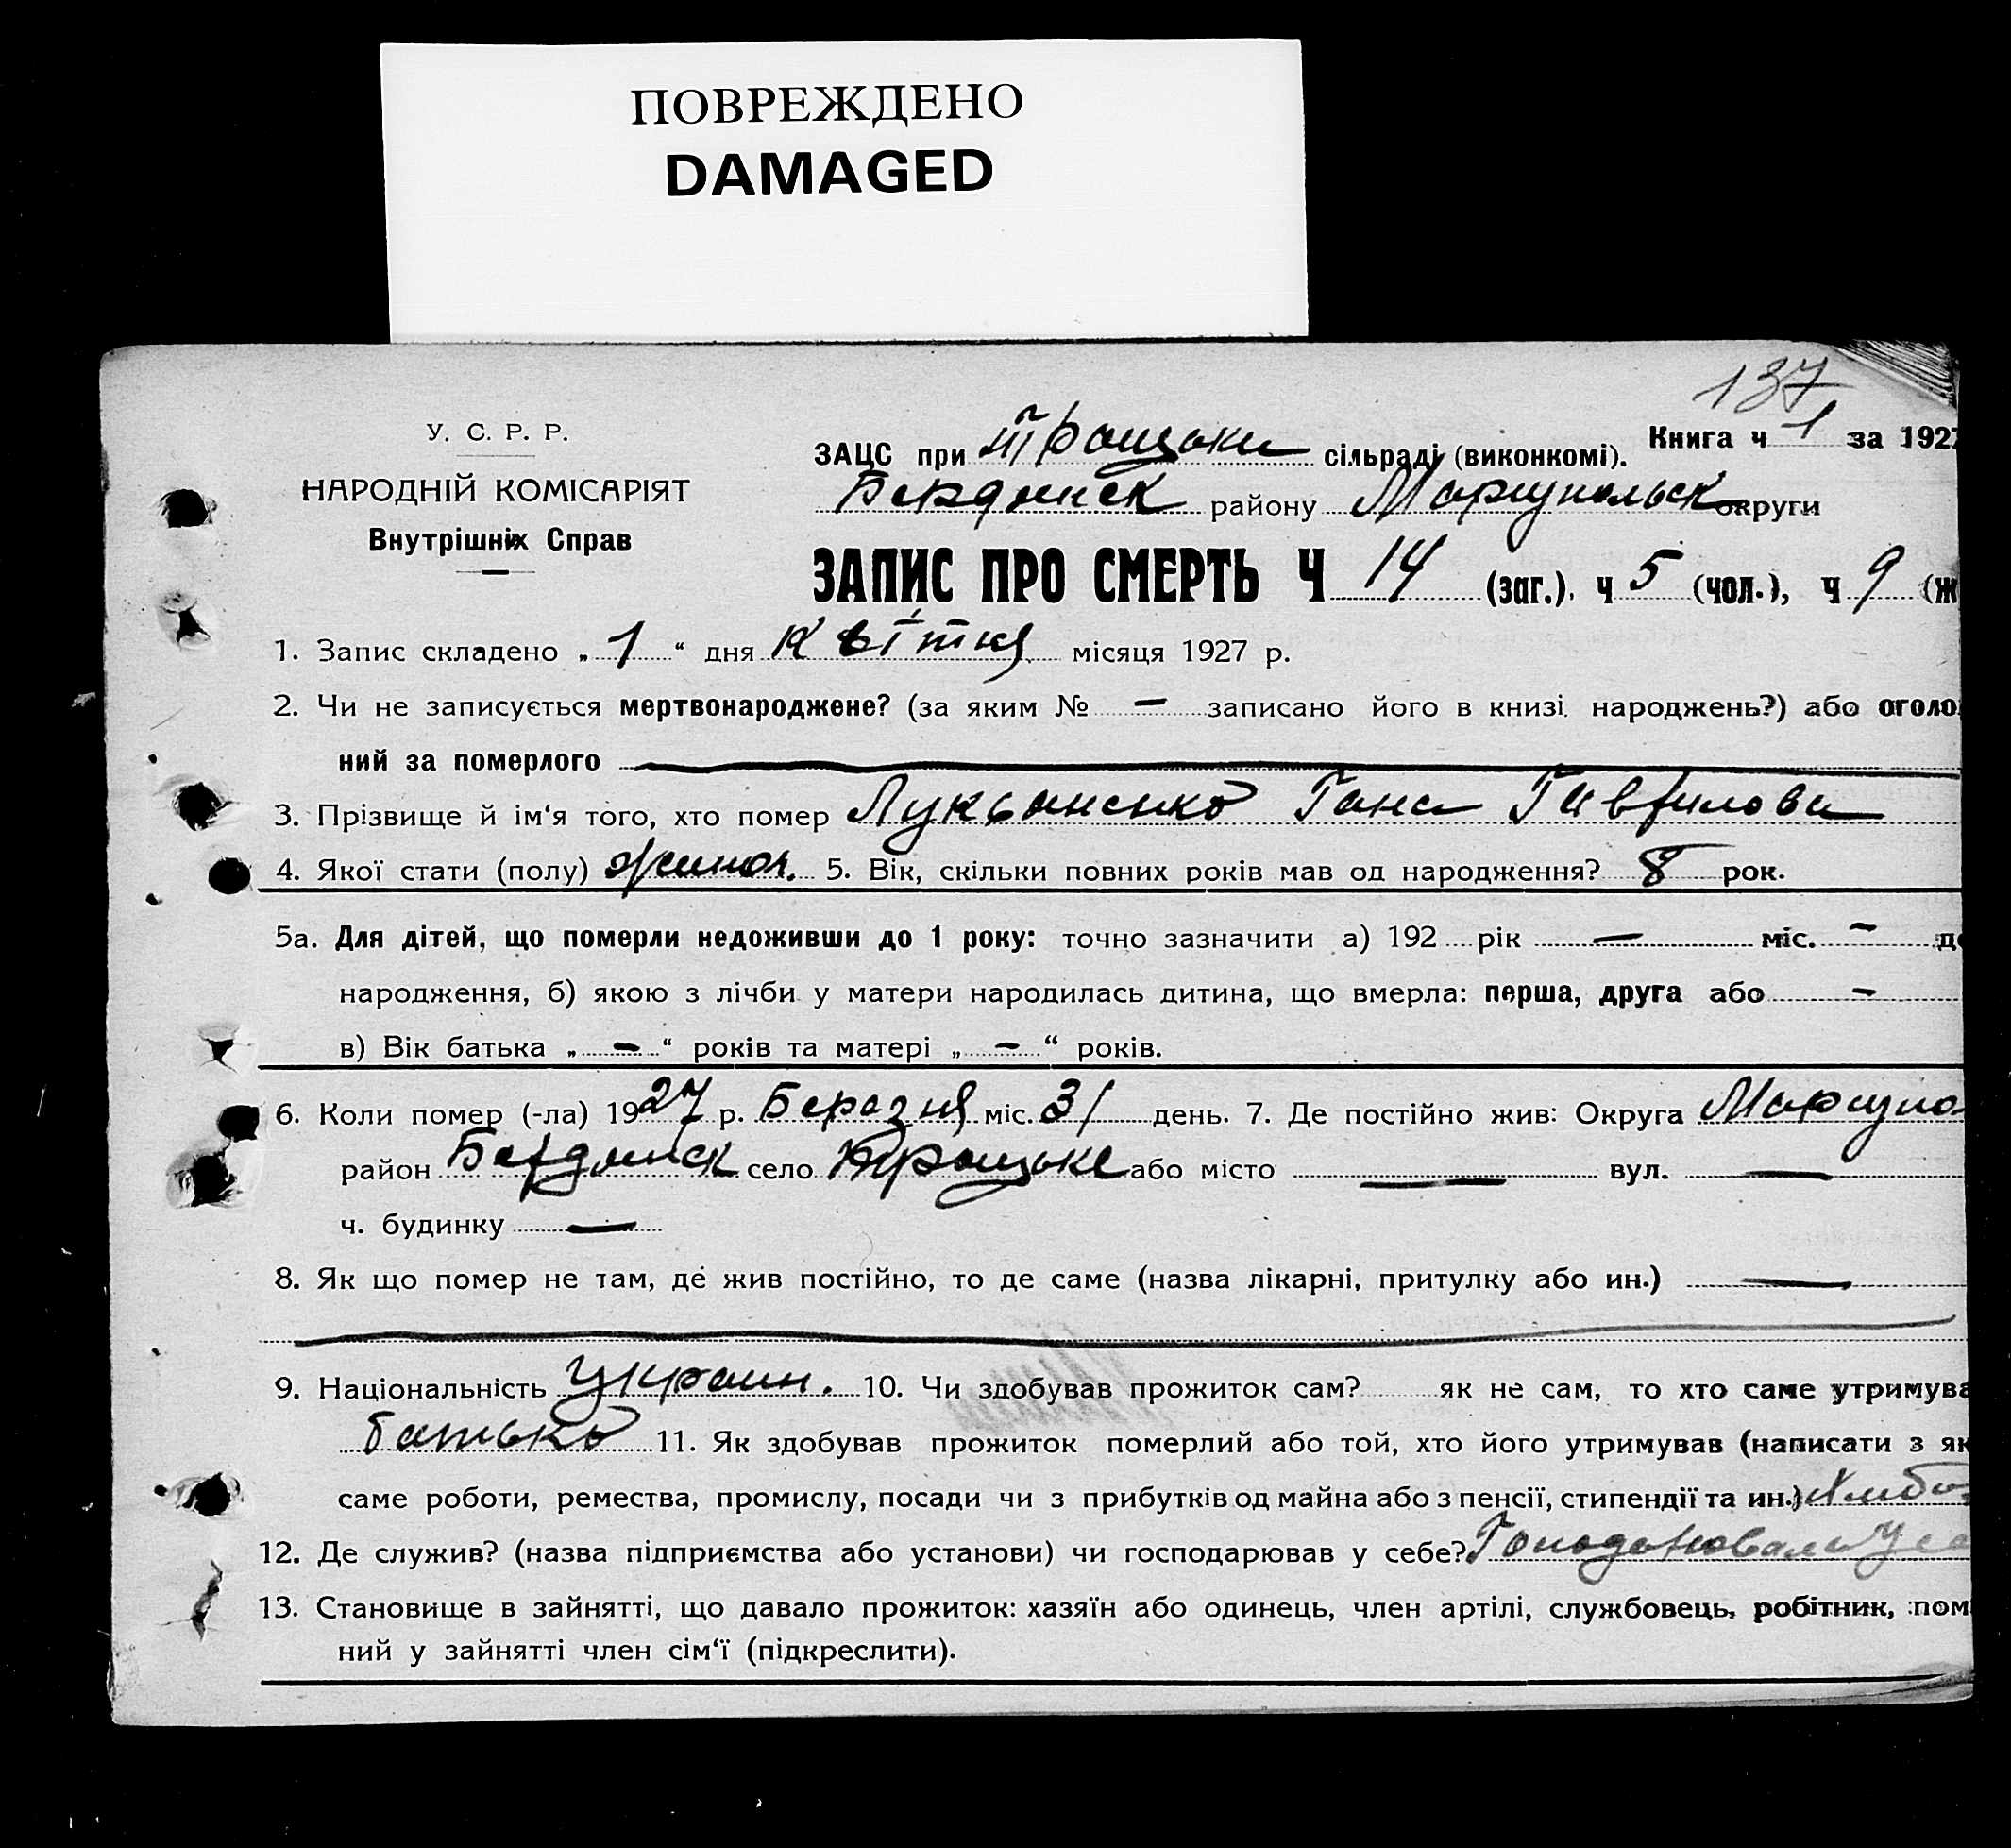 ПОВРЕЖДЕНО
DAMAGED
137
У. С. Р. Р.
НАРОДНІЙ КОМІСАРІЯТ
Внутрішніх Справ
Книга ч 1 за 1927
ЗАЦС при сільраді (виконкомі).
Бердянск району Маріупольск округи
ЗАПИС ПРО СМЕРТЬ Ч 14 (заг.). ч 5 (чол.), ч 9 (ж
1. Запис складено „ 1 “ дня Квітня місяця 1927 р.
2. Чи не записується мертвонароджене? (за яким № — записано його в книзі народжень?) або оголо
ний за померлого —
3. Прізвище й ім‘я того, хто помер Лукьаненко Гана Гаврилова
4. Якої стати (полу) жиноч. 5. Вік, скільки повних років мав од народження? 8 рок.
5а. Для дітей, що померли недоживши до 1 року: точно зазначити а) 192 рік — міс. —
народження, б) якою з лічби у матери народилась дитина, що вмерла: перша, друга або —
в) Вік батька „ — “ років та матері „ — “ років.
6. Коли помер (-ла) 1927 р. Березня міс. 31 день. 7. Де постійно жив: Округа Маріупо
район Бердянск село Троцьке або місто — вул. —
ч. будинку —
8. Як що помер не там, де жив постійно, то де саме (назва лікарні, притулку або ин.) —
9. Національність Украин. 10. Чи здобував прожиток сам? як не сам, то хто саме утримува
батько 11. Як здобував прожиток померлий або той, хто його утримував (написати з як
саме роботи, ремества, промислу, посади чи з прибутків од майна або з пенсії, стипендії та ин.)
12. Де служив? (назва підприємства або установи) чи господарював у себе?
13. Становище в зайнятті, що давало прожиток: хазяїн або одинець, член артілі, службовець, робітник, пом
ний у зайнятті член сім‘ї (підкреслити).